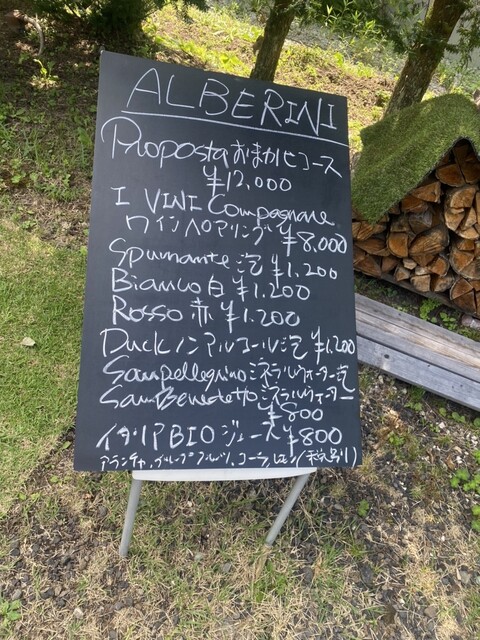 ALBERINI
Proposta おまかせコース
¥12,000
I VINI Compagnare
ワインペアリング ¥8,000
Spumante 泡 ¥1,200
Bianco 白 ¥1,200
Rosso 赤 ¥1,200
Duck ノンアルコール泡 ¥1,200
Sanpellegrino ミネラルウォーター泡
SanBenedetto ミネラルウォーター
¥800
イタリアBIOジュース ¥800
アランチャ,グレープフルーツ,コーラ,レモン(税別)